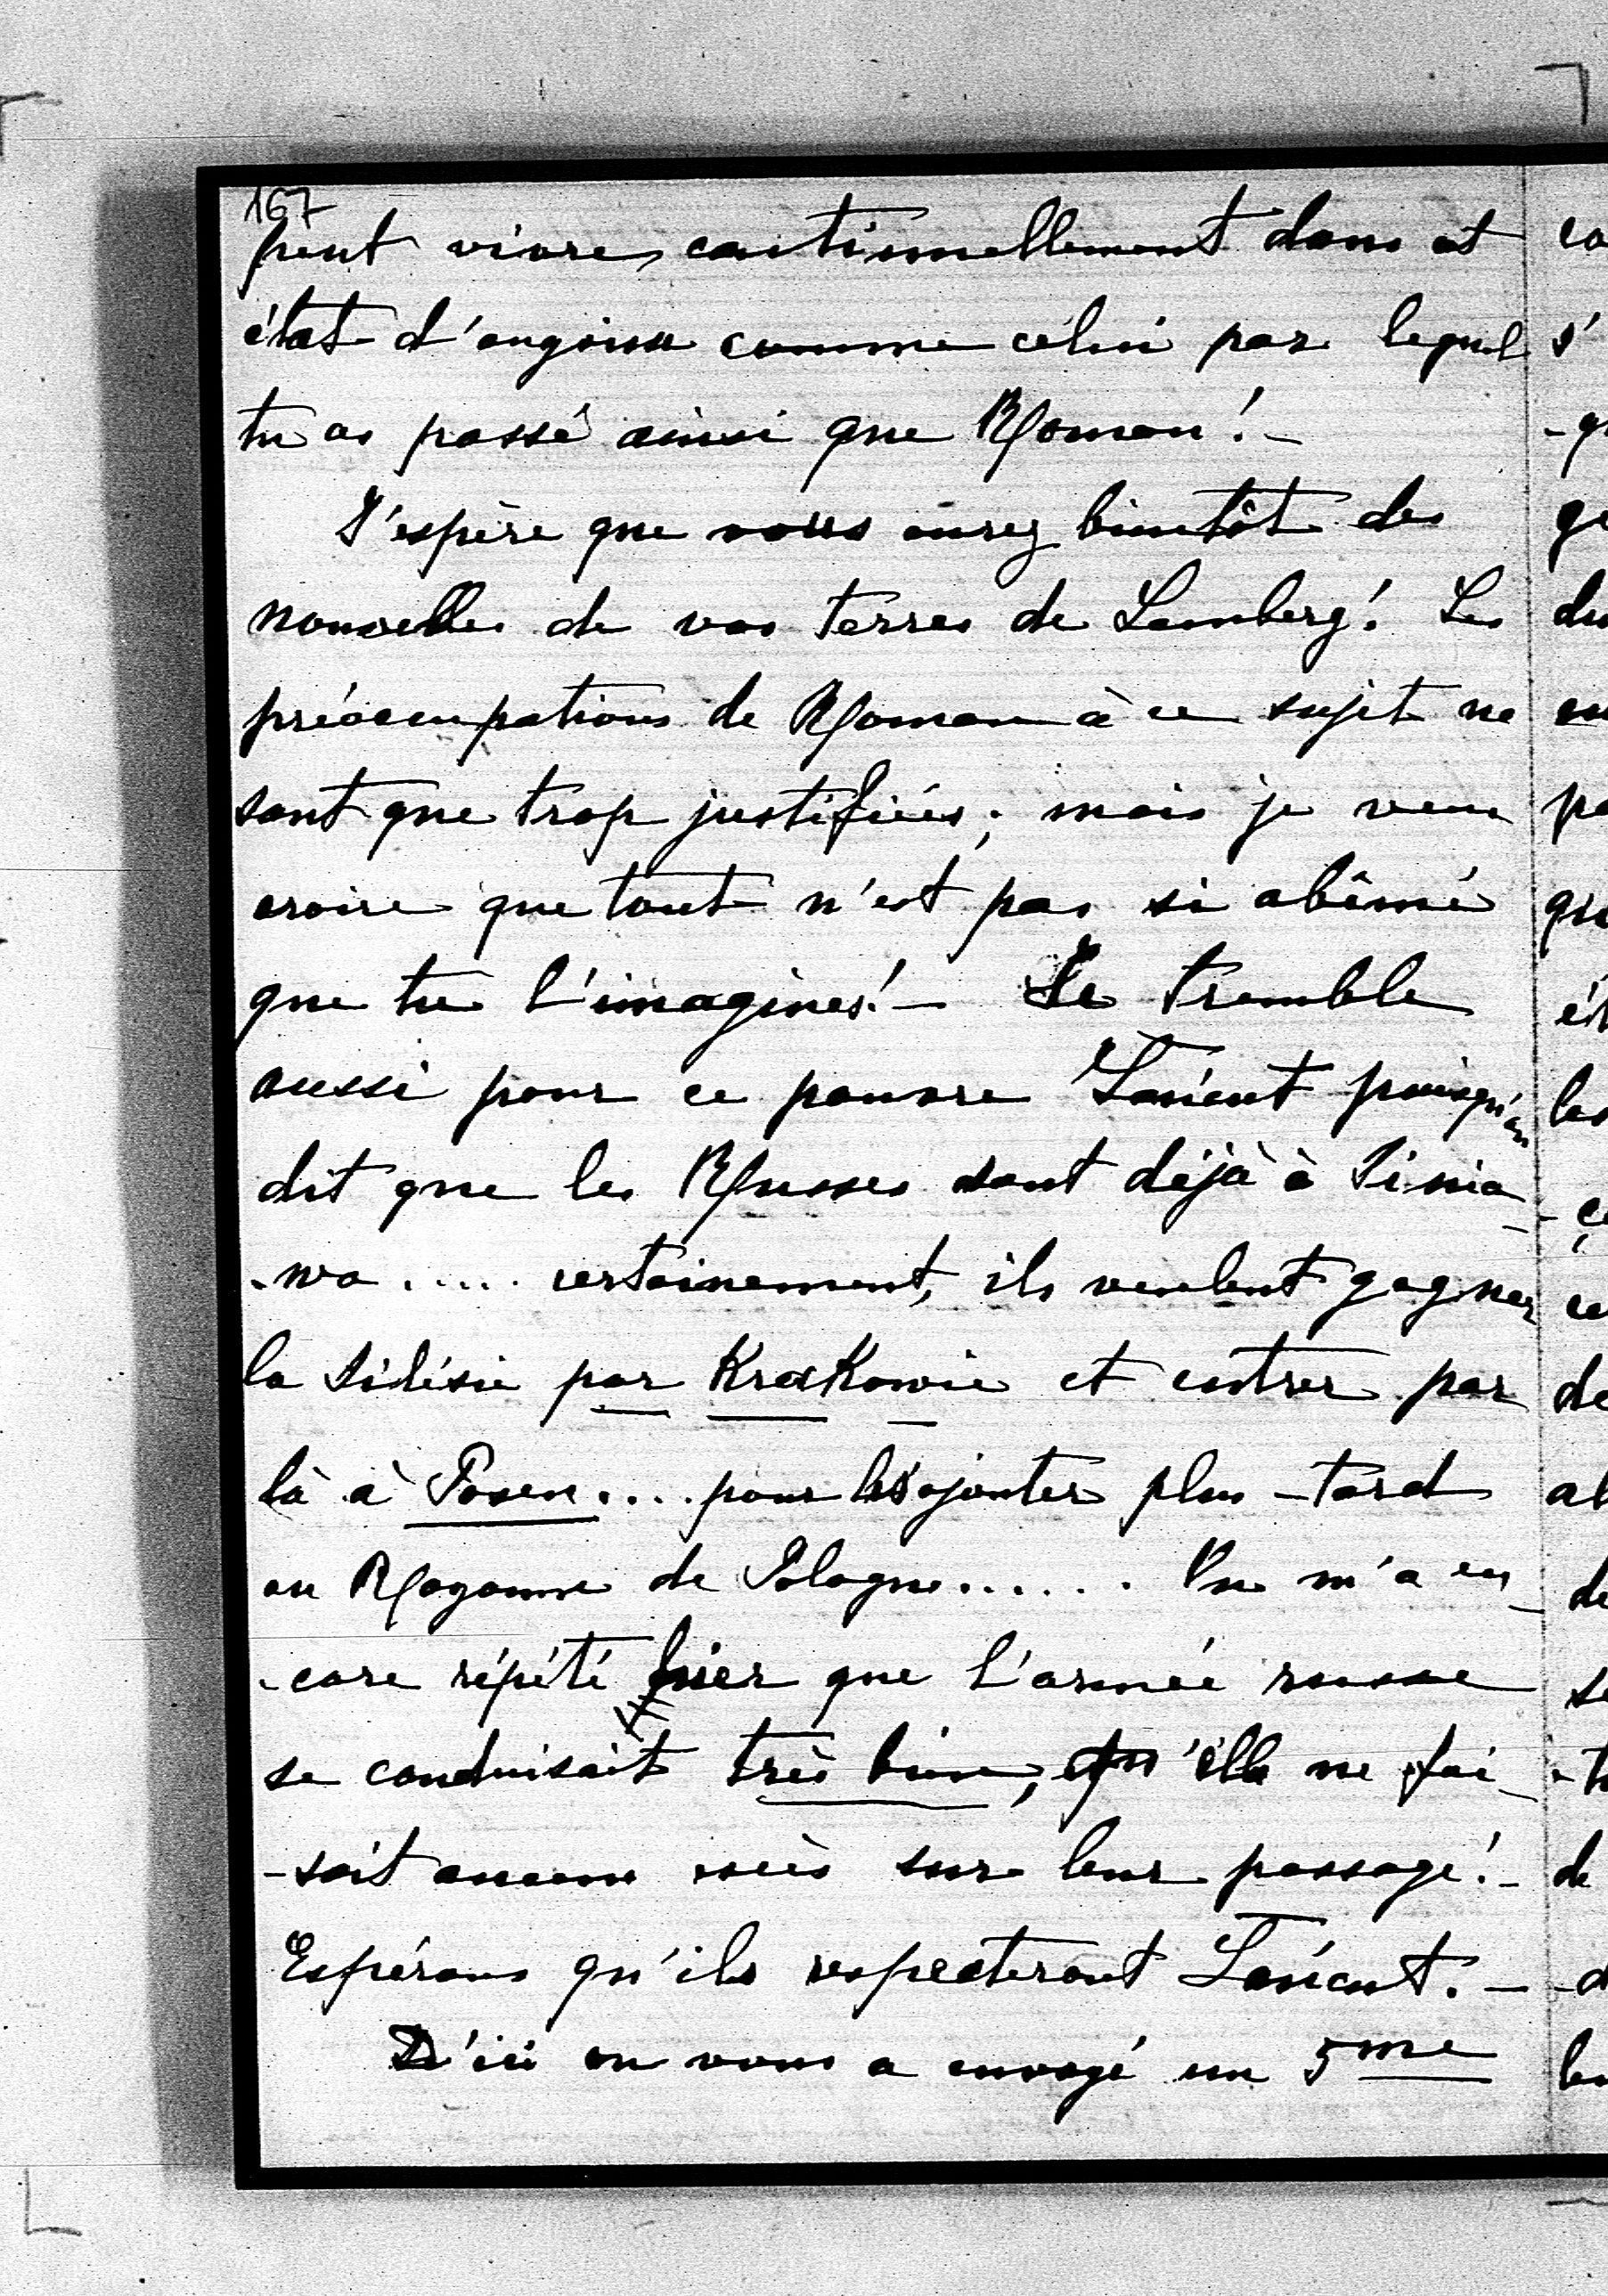 167
peut vivre, continuellement dans cet
état d'angoisse comme célui par lequel
tu as passé ainsi que Roman! -
J'espère que vous aurez bientôt des
nouvelles de vos terres de Lemberg! Les
préoccupations de Roman à ce sujet ne
sont que trop justifiées; mais je veux
croire que tout n'est pas si abîmé
que tu l'imagines! - Je tremble
aussi pour ce pauvre Łańcut puisqu'on
dit que les Russes sont déjà à Sinia-
-wa ..... certainement, ils veulent gagner
la Silésie par Krakowie et entrer par
là à Posen .... pour les ajouter plus-tard
au Royaume de Pologne ...... On m'a en-
-core répété hier que l'armée russe
se conduisait très bien, qu'elle ne fai-
-sait aucun excès sur leur passage! -
Espérons qu'ils respecteront Łańcut. -
D'ici on vous a envoyé un 5me